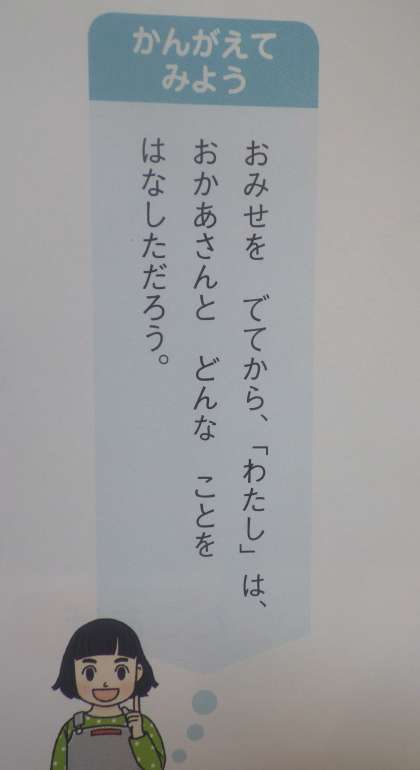 かんがえて
みよう
おみせを　でてから、「わたし」は、
おかあさんと　どんな　ことを
はなしただろう。